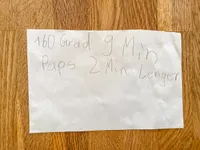 160 Grad 9 Min
Paps 2 Min Länger